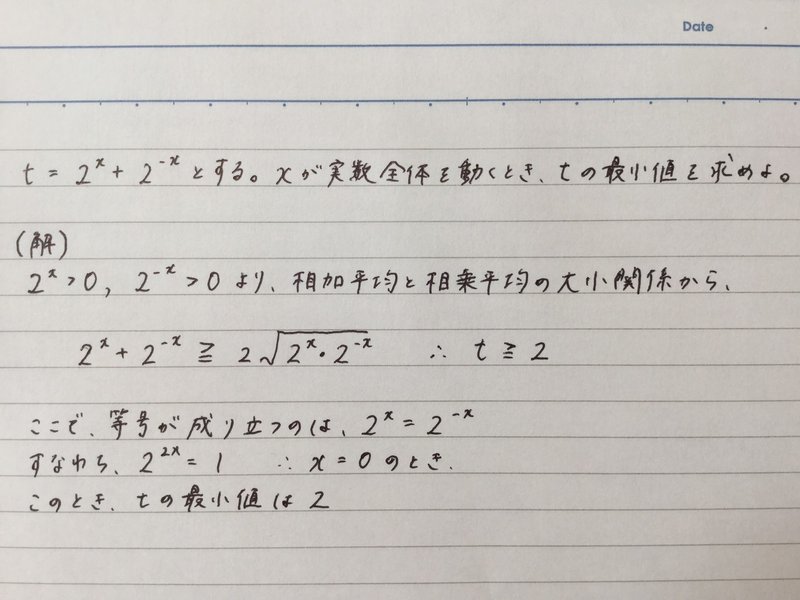 Date
t = 2^x + 2^-x とする。xが実数全体を動くとき、tの最小値を求めよ。
(解)
2^x > 0, 2^-x > 0 より、相加平均と相乗平均の大小関係から、
2^x + 2^-x ≧ 2√(2^x・2^-x) ∴ t ≧ 2
ここで、等号が成り立つのは、2^x = 2^-x
すなわち、2^2x = 1 ∴ x = 0 のとき.
このとき、tの最小値は 2